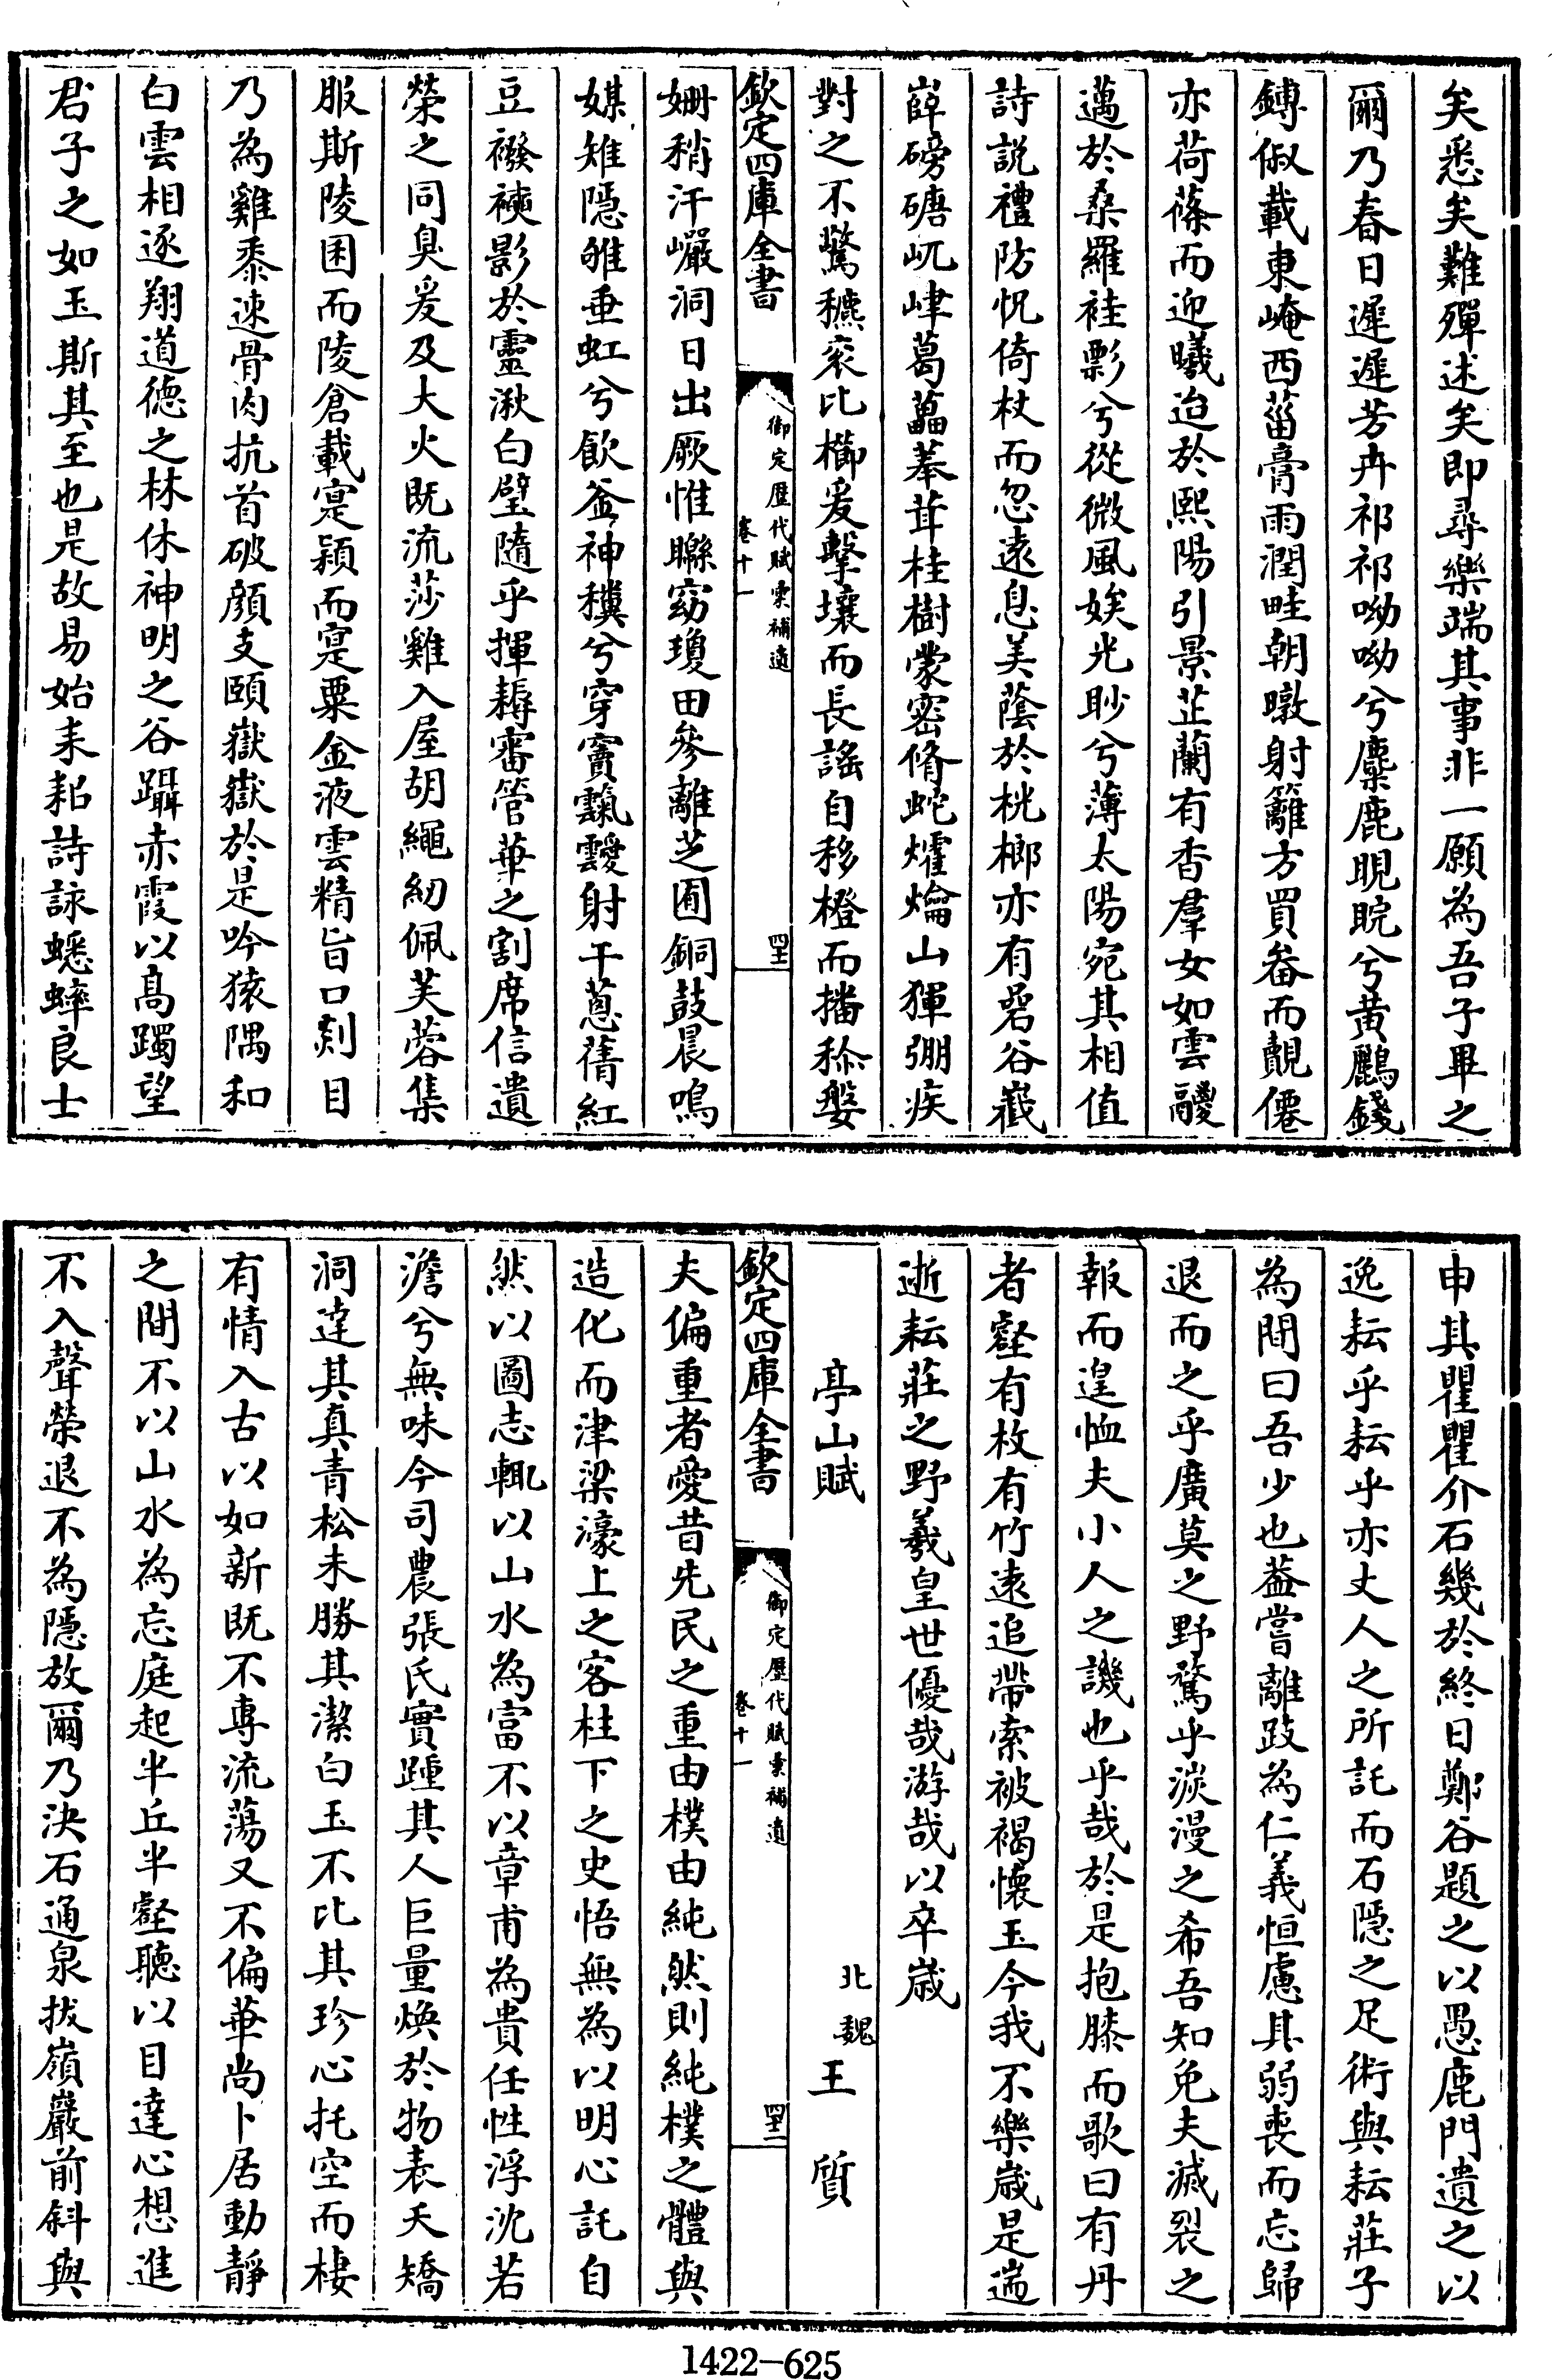 矣悉矣難殫述矣即尋樂端其事非一願為吾子畢之
爾乃春日遲遲芳卉祁祁呦呦兮麋鹿睍睆兮黃鸝錢
鎛俶載東崦西菑膏雨潤畦朝暾射籬方買畚而覿僊
亦荷蓧而迎曦迨於熙陽引景芷蘭有香羣女如雲
邁於桑羅袿影兮從微風娭光眇兮薄太陽宛其相值
詩說禮防怳倚杖而忽遠息美蔭於桄榔亦有嵒谷嶻
嶭磅磄屼嵂葛藟菶茸桂樹蒙密脩蛇爚山獋弸疾
對之不驚穮蔉比櫛爰擊壤而長謠自移橙而播稌媻
欽定四庫全書
御定歷代賦彙補遺
卷十一
姍稍汗巗洞日出厥惟聯窈瓊田參離芝圃銅鼓晨鳴
媒雉隱雊垂虹兮飲釜神穬兮穿竇靉射干蔥蒨紅
豆襏襫影於靈湫白璧隨乎揮耨審管華之割席信遺
榮之同臭爰及大火既流莎雞入屋胡繩紉佩芙蓉集
服斯陵囷而陵倉載寔穎而寔粟金液雲精旨口剡目
乃為雞黍速骨肉抗首破顏支頤嶽嶽於是吟猿隅和
白雲相逐翔道德之林休神明之谷躡赤霞以高躅望
君子之如玉斯其至也是故易始耒耜詩詠蟋蟀良士
申其瞿瞿介石幾於終日鄭谷題之以愚鹿門遺之以
逸耘乎耘乎亦丈人之所託而石隱之足術與耘莊子
為間曰吾少也蓋嘗離跂為仁義恒慮其弱喪而忘歸
退而之乎廣莫之野騖乎淡漫之希吾知免夫滅裂之
報而遑恤夫小人之譏也乎哉於是抱膝而歌曰有丹
者壑有枚有竹遠追帶索被褐懷玉今我不樂歲是遄
逝耘莊之野羲皇世優哉游哉以卒歲
亭山賦
北魏王質
欽定四庫全書
御定歷代賦彙補遺
卷十一
夫偏重者愛昔先民之重由樸由純然則純樸之體與
造化而津梁濠上之客柱下之史悟無為以明心託自
然以圖志輒以山水為富不以章甫為貴任性浮沈若
澹兮無味今司農張氏實踵其人巨量煥於物表夭矯
洞達其真青松未勝其潔白玉不比其珍心托空而棲
有情入古以如新既不專流蕩又不偏華尚卜居動靜
之間不以山水為忘庭起半丘半壑聽以目達心想進
不入聲榮退不為隱放爾乃決石通泉拔嶺巖前斜與
1422-625